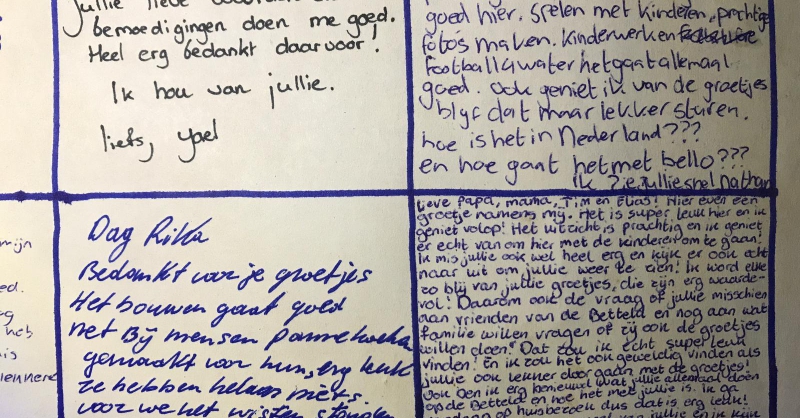 jullie lieve
bemoedigingen doen me goed.
Heel erg bedankt daarvoor!
Ik hou van jullie.
liefs, Yoel
goed hier. Spelen met kinderen, prachtige
foto's maken. Kinderwerken
Football4water het gaat allemaal
goed. Ook geniet ik van de groetjes
blyf dat maar lekker sturen.
hoe is het in Nederland???
en hoe gaat het met bello???
Ik zie jullie snel Nathan
mijn
ed.
heb
is
Dag Rika
Bedankt voor je groetjes
Het bouwen gaat goed
met Bij mensen pannekoeken
gemaakt voor hun, erg leuk
ze hebben helaas niets
voor we het wisten stonden
Lieve papa, mama, Tim en Elias! Hier even een
groetje namens mij. Het is super leuk hier en ik
geniet volop! Het uitzicht is prachtig en ik geniet
er echt van om hier met de kinderen om te gaan!
Ik mis jullie ook wel heel erg en kijk er ook echt
naar uit om jullie weer te zien! Ik word elke
zo blij van jullie groetjes, die zijn erg waarde-
vol! Daarom ook de vraag of jullie misschien
aan vrienden van de Betteld en nog aan wat
familie willen vragen of zij ook de groetjes
willen doen! Dat zou ik echt super leuk
vinden! En ik zou het ook geweldig vinden als
jullie ook lekker door gaan met de groetjes!
Ook ben ik erg benieuwd wat jullie allemaal doen
op de Betteld en hoe het met jullie is. Ik ga
op huisbezoek dus dat is erg leuk!